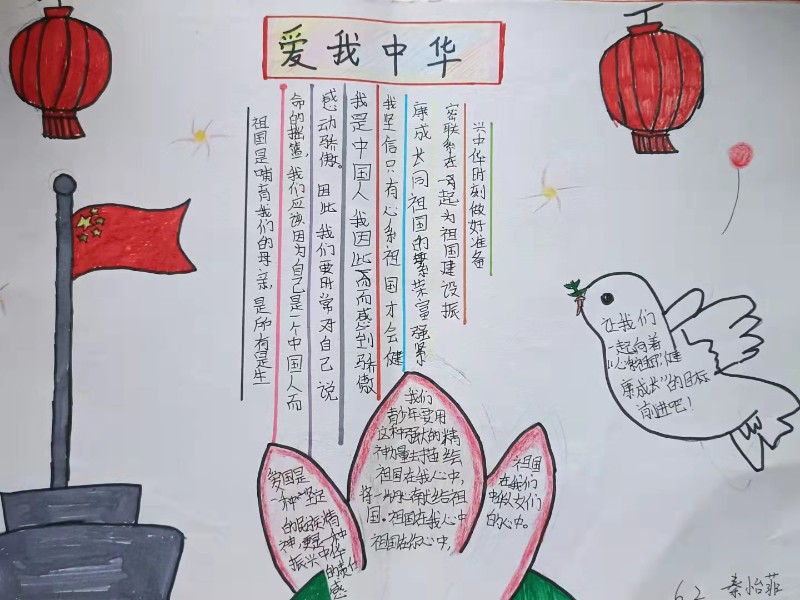 爱我中华
祖国是哺育我们的母亲,是所有是生
命的摇篮,我们应该因为自己是一个中国人而
感动骄傲。因此我们要时常对自己说
我是中国人我因此而感到骄傲
我坚信只有心系祖国才会健
康成长同祖国的繁荣富强紧
密联系在一起为祖国建设振
兴中华时刻做好准备
让我们
一起向着
“心系祖国,健
康成长”的目标
前进吧!
爱国是
一种坚定
的民族精
神,更是一种
振兴中华
的责任
感
我们
青少年要用
这种强大的精
神力量去描绘
祖国在我心中,
择一的心存状给祖
国。祖国在我心中
祖国在你心中,
祖国
在我们
中华儿女们
的心中。
6.2 秦怡菲